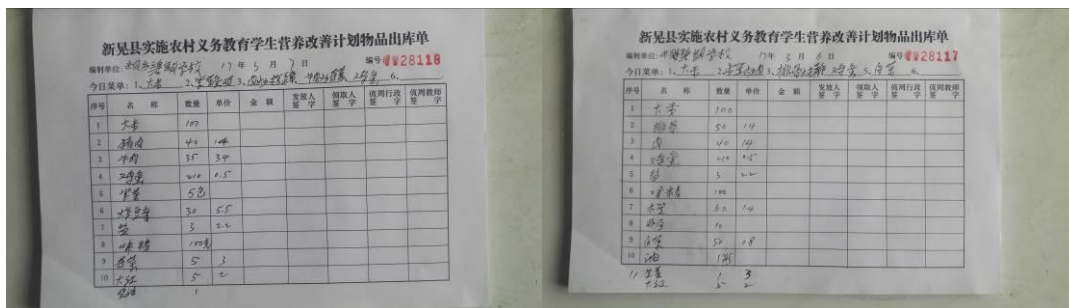 新晃县实施农村义务教育学生营养改善计划物品出库单
编制单位: 学校 17年3月7日 编号 0028118
今日菜单: 1、大米 2、 3、 4、 5、 6、
序号 名 称 数量 单价 金 额 发放人签 字 领取人签 字 值周行政签 字 值周教师签 字
1 大米 100
2 猪肉 40 14
3 牛肉 35 34
4 鸡蛋 210 0.5
5 5包
6 30 5.5
7 盐 3 2.2
8 味精 100克
9 5 3
10 大红 5 2
1
新晃县实施农村义务教育学生营养改善计划物品出库单
编制单位: 学校 17年3月6日 编号 0028117
今日菜单: 1、大米 2、 3、排骨 4、鸡蛋 5、白菜 6、
序号 名 称 数量 单价 金 额 发放人签 字 领取人签 字 值周行政签 字 值周教师签 字
1 大米 100
2 排骨 50 14
3 肉 40 14
4 鸡蛋 210 0.5
5 盐 3 2.2
6 味精 100
7 60 1.4
8 10
9 白菜 50 1.8
10 油 1
11 生姜 1 3
大红 5 2